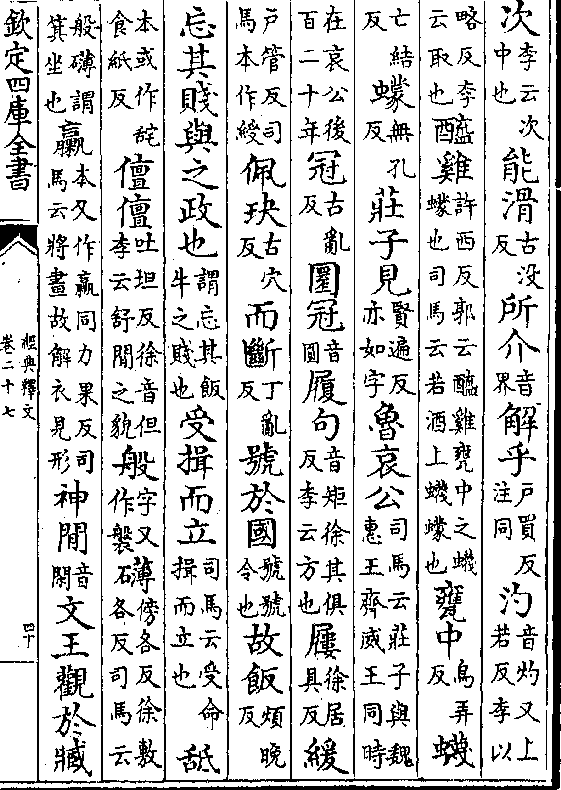 次李云次中也能滑古没反所介音界解乎户買反注同汋音灼又上若反李以
略反李云取也醯雞許西反郭云醯雞甕中之蠛蠓也司馬云若酒上蠛蠓也甕中烏弄反蠛
亡結反蠓無孔反莊子見賢遍反亦如字魯哀公司馬云莊子與魏惠王齊威王同時
在哀公後百二十年冠古亂反圜冠音圓履句音矩徐其俱反李云方也屨徐居具反緩
户管反司馬本作綬佩玦古穴反而斷丁亂反號於國號號令也故飯煩晚反
忘其賤與之政也謂忘其飯牛之賤也受揖而立司馬云受命揖而立也舐
本或作食紙反儃儃吐坦反徐音但李云舒閒之貌般字又作槃薄傍各反徐敷石各反司馬云
般礴謂箕坐也臝本又作羸同力果反司馬云將畫故解衣見形神閒音閑文王觀於臧
欽定四庫全書
經典釋文
卷二十七
四十